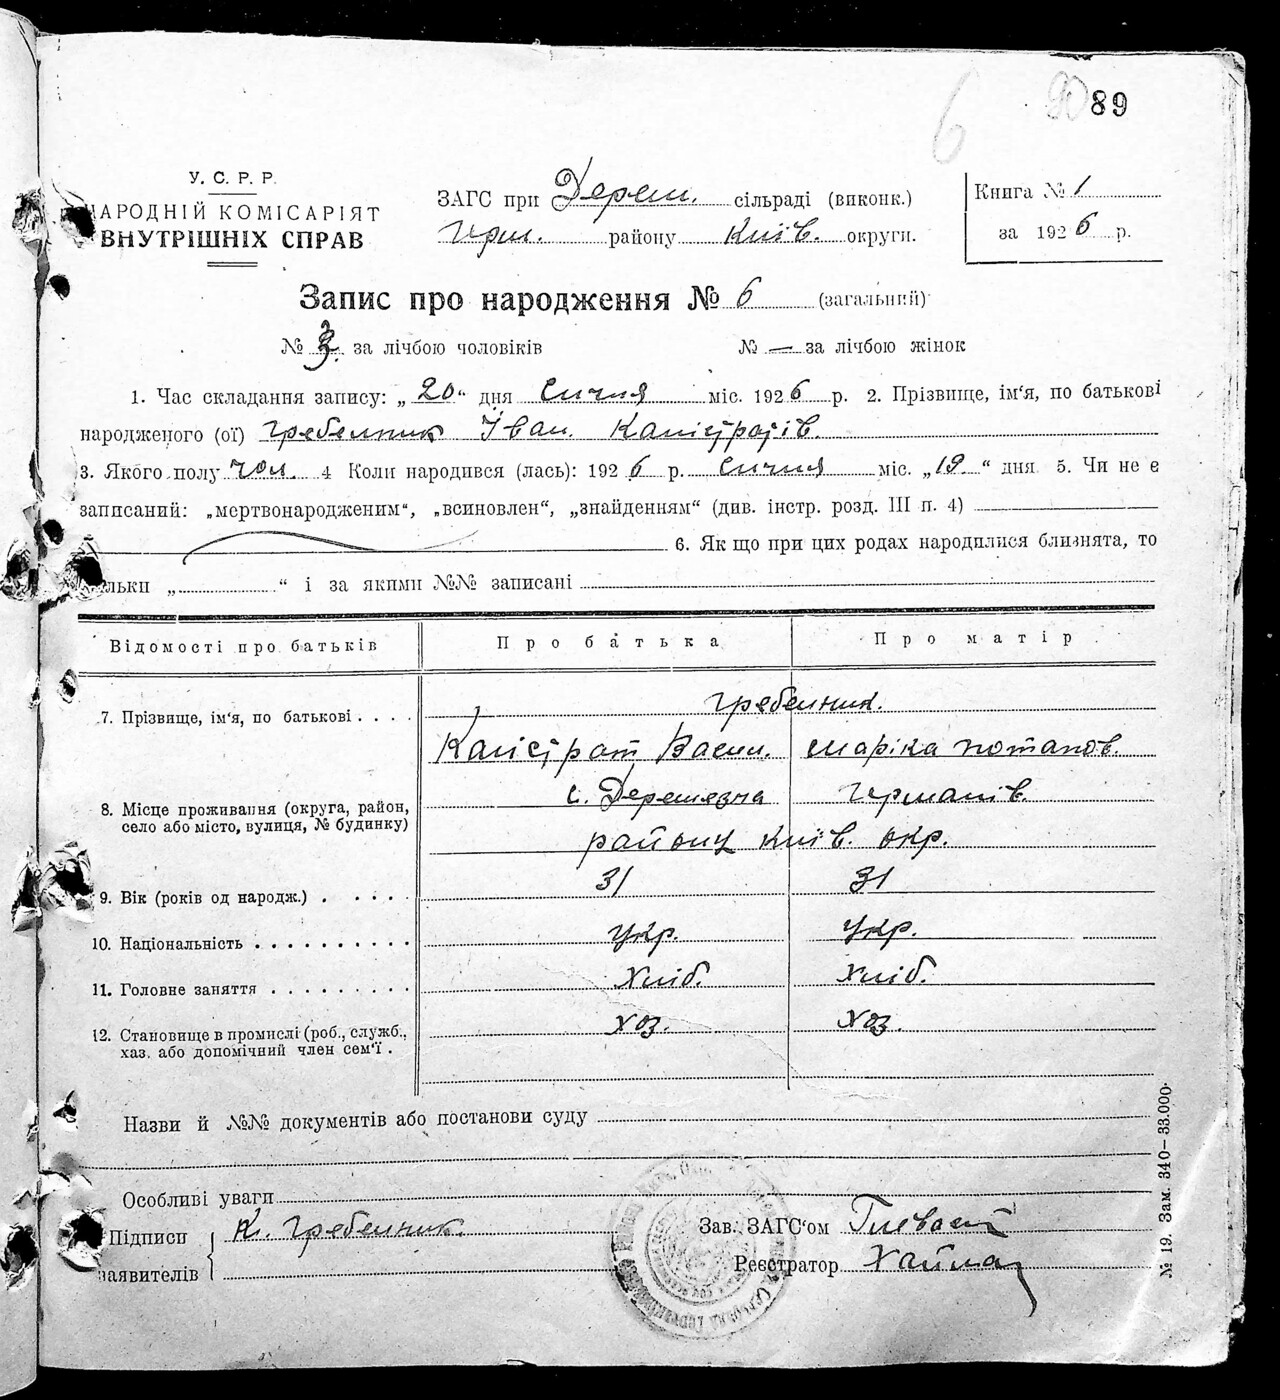 6 90 89
У. С. Р. Р.
НАРОДНІЙ КОМІСАРІЯТ
ВНУТРІШНІХ СПРАВ
ЗАГС при Дерем. сільраді (виконк.)
Герм. району Київ. округи.
Книга № 1
за 1926 р.
Запис про народження № 6 (загальний)
№ 3. за лічбою чоловіків № — за лічбою жінок
1. Час складання запису: „ 20 “ дня Січня міс. 1926 р. 2. Прізвище, ім‘я, по батькові
народженого (ої) Гребенник Іван Калістратів.
3. Якого полу чол. 4 Коли народився (лась): 1926 р. Січня міс. „ 19 “ дня 5. Чи не є
записаний: „мертвонародженим“, „всиновлен“, „знайденням“ (див. інстр. розд. III п. 4)
6. Як що при цих родах народилися близнята, то
скільки „ “ і за якими №№ записані
Відомості про батьків Про батька Про матір
7. Прізвище, ім‘я, по батькові Гребенник.
Калістрат Васил. Маріка Потапов.
8. Місце проживання (округа, район, с. Деремезна Германів.
село або місто, вулиця, № будинку)
району Київ. окр.
9. Вік (років од народж.) 31 31
10. Національність укр. укр.
11. Головне заняття Хліб. Хліб.
12. Становище в промислі (роб., служб., хоз. хоз.
хаз. або допомічний член сем‘ї .
Назви й №№ документів або постанови суду
Особливі уваги
Підписи К. Гребенник. Зав. ЗАГС‘ом
заявителів Реєстратор
№ 19. Зам. 340—33.000.